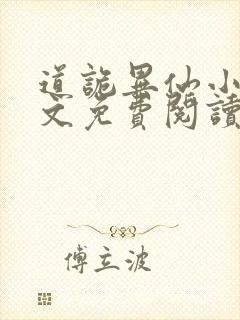 道詭異仙小
文免費閱讀
傅立波